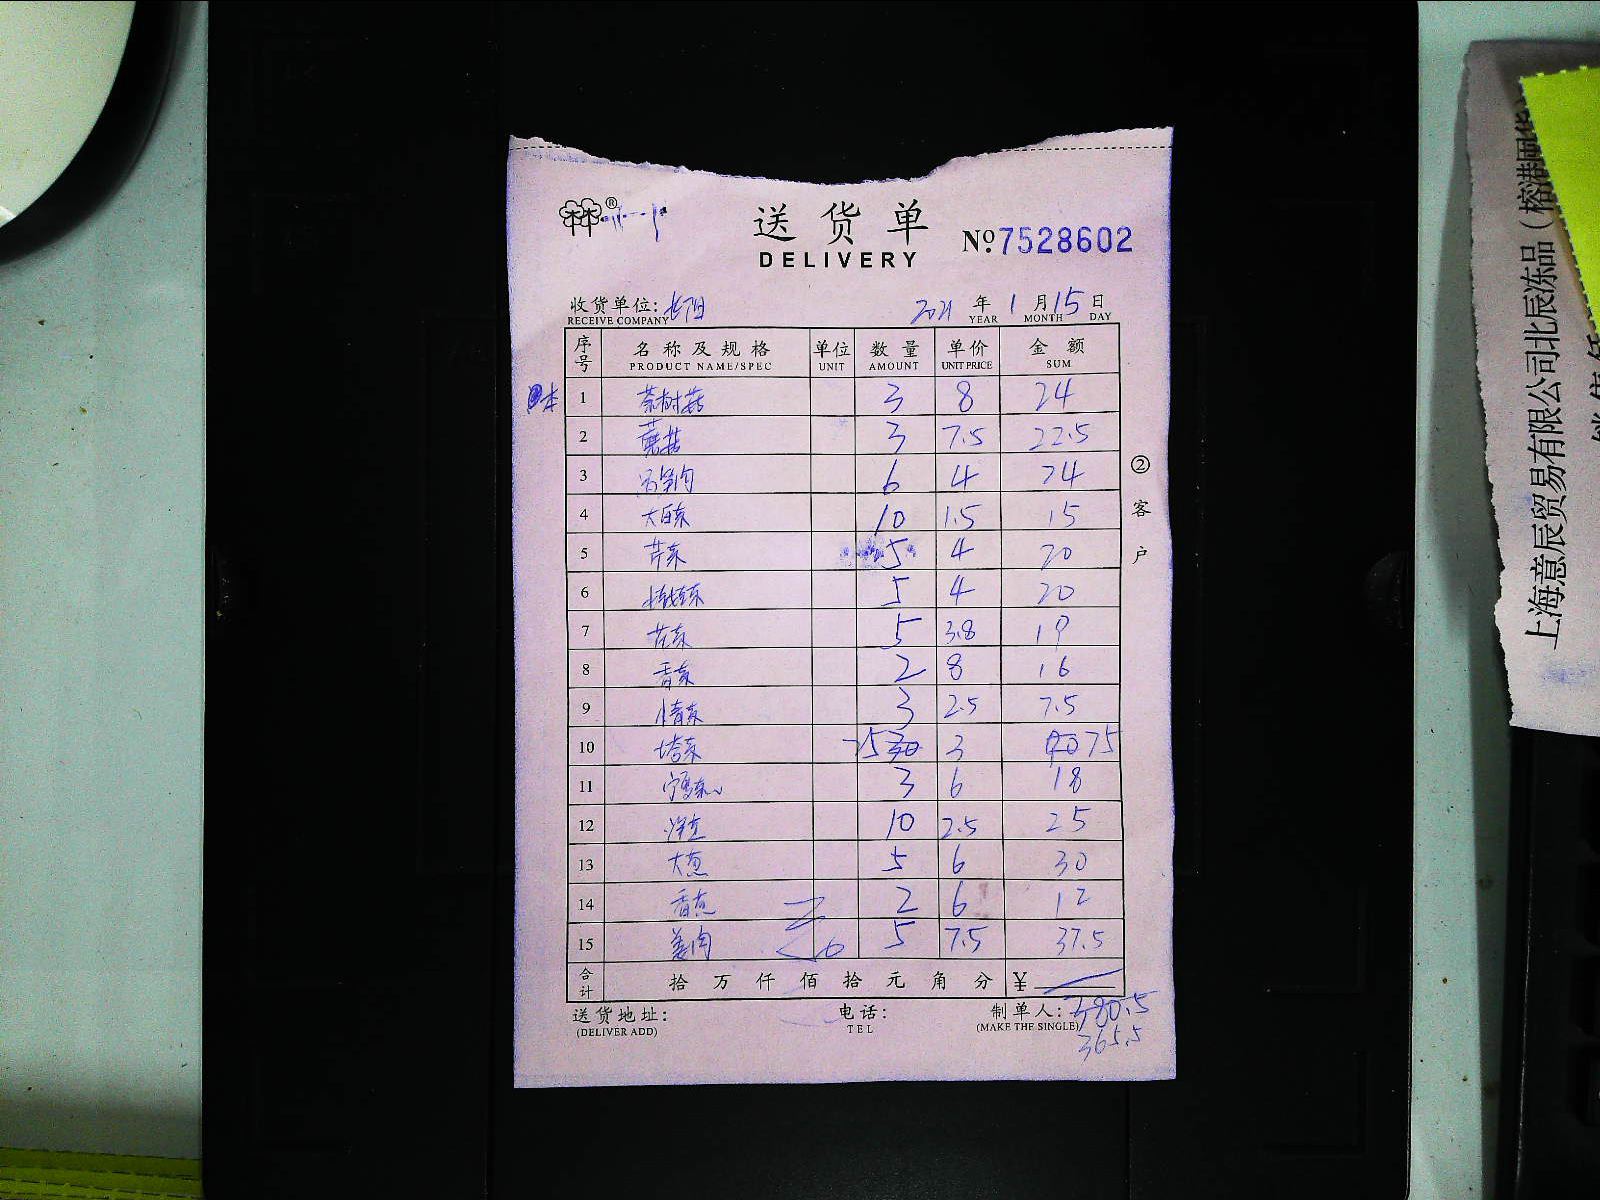 送货单
DELIVERY
№7528602
收货单位: 长阳 2021 年 1 月 15 日
RECEIVE COMPANY YEAR MONTH DAY
序号 名称及规格 单位 数量 单价 金额
PRODUCT NAME/SPEC UNIT AMOUNT UNIT PRICE SUM
1 茶树菇 3 8 24
2 蘑菇 3 7.5 22.5
3 6 4 24
4 大白菜 10 1.5 15
5 芹菜 5 4 20
6 5 4 20
7 花菜 5 3.8 19
8 香菜 2 8 16
9 小青菜 3 2.5 7.5
10 塔菜 3 75
11 3 6 18
12 10 2.5 25
13 大葱 5 6 30
14 香葱 2 6 12
15 姜肉 5 7.5 37.5
合计 拾 万 仟 佰 拾 元 角 分 ¥
送货地址: 电话: 制单人: 380.5
(DELIVER ADD) TEL (MAKE THE SINGLE)
365.5
② 客户
上海意辰贸易有限公司北辰冻品